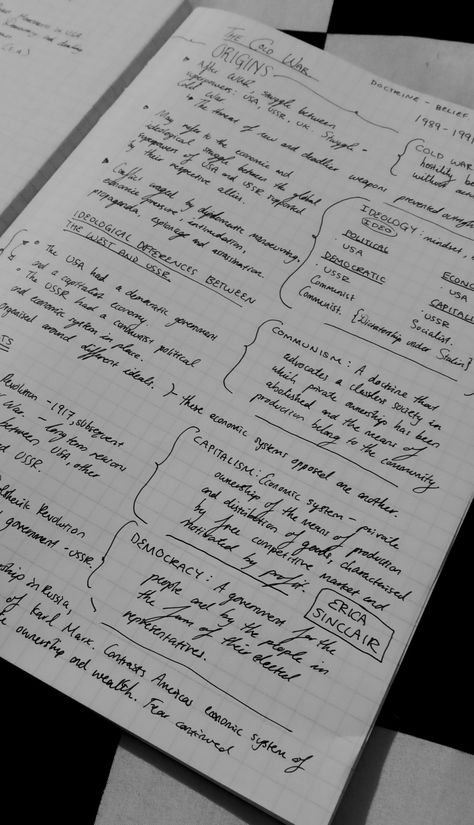 THE COLD WAR
ORIGINS
After WWII, struggle between
superpowers: USA, USSR, UK. Struggle -
Cold War
The threat of new and deadlier weapons prevented outright
May refer to the economic and
ideological struggle between the global
superpowers of USA and USSR supported
by their respective allies.
Conflict waged by diplomatic manoeuvring,
economic pressure, intimidation,
propaganda, espionage and assassination.
IDEOLOGICAL DIFFERENCES BETWEEN
THE WEST AND USSR
The USA had a democratic government
and a capitalist economy.
The USSR had a communist political
and economic system in place.
organised around different ideals. } these economic systems opposed one another.
Revolution - 1917, subsequent
War. long term
between USA, other
and USSR.
Revolution
government - USSR.
in Russia,
of Karl Marx. Contrasts Americas economic system of
ownership and wealth. Fear continued
DOCTRINE - BELIEF
1989-1991
COLD WAR
hostility
without
IDEOLOGY: mindset,
(IDEO)
POLITICAL
USA
DEMOCRATIC
USSR
Communist
Communist. {Dictatorship under Stalin}
ECONO
USA
CAPITAL
USSR
Socialist.
COMMUNISM: A doctrine that
advocates a classless society in
which private ownership has been
abolished and the means of
production belong to the community
CAPITALISM: Economic system - private
ownership of the means of production
and distribution of goods, characterised
by free competitive market and
motivated by profit.
DEMOCRACY: A government for the
people and by the people in
the form of their elected
representatives.
ERICA
SINCLAIR